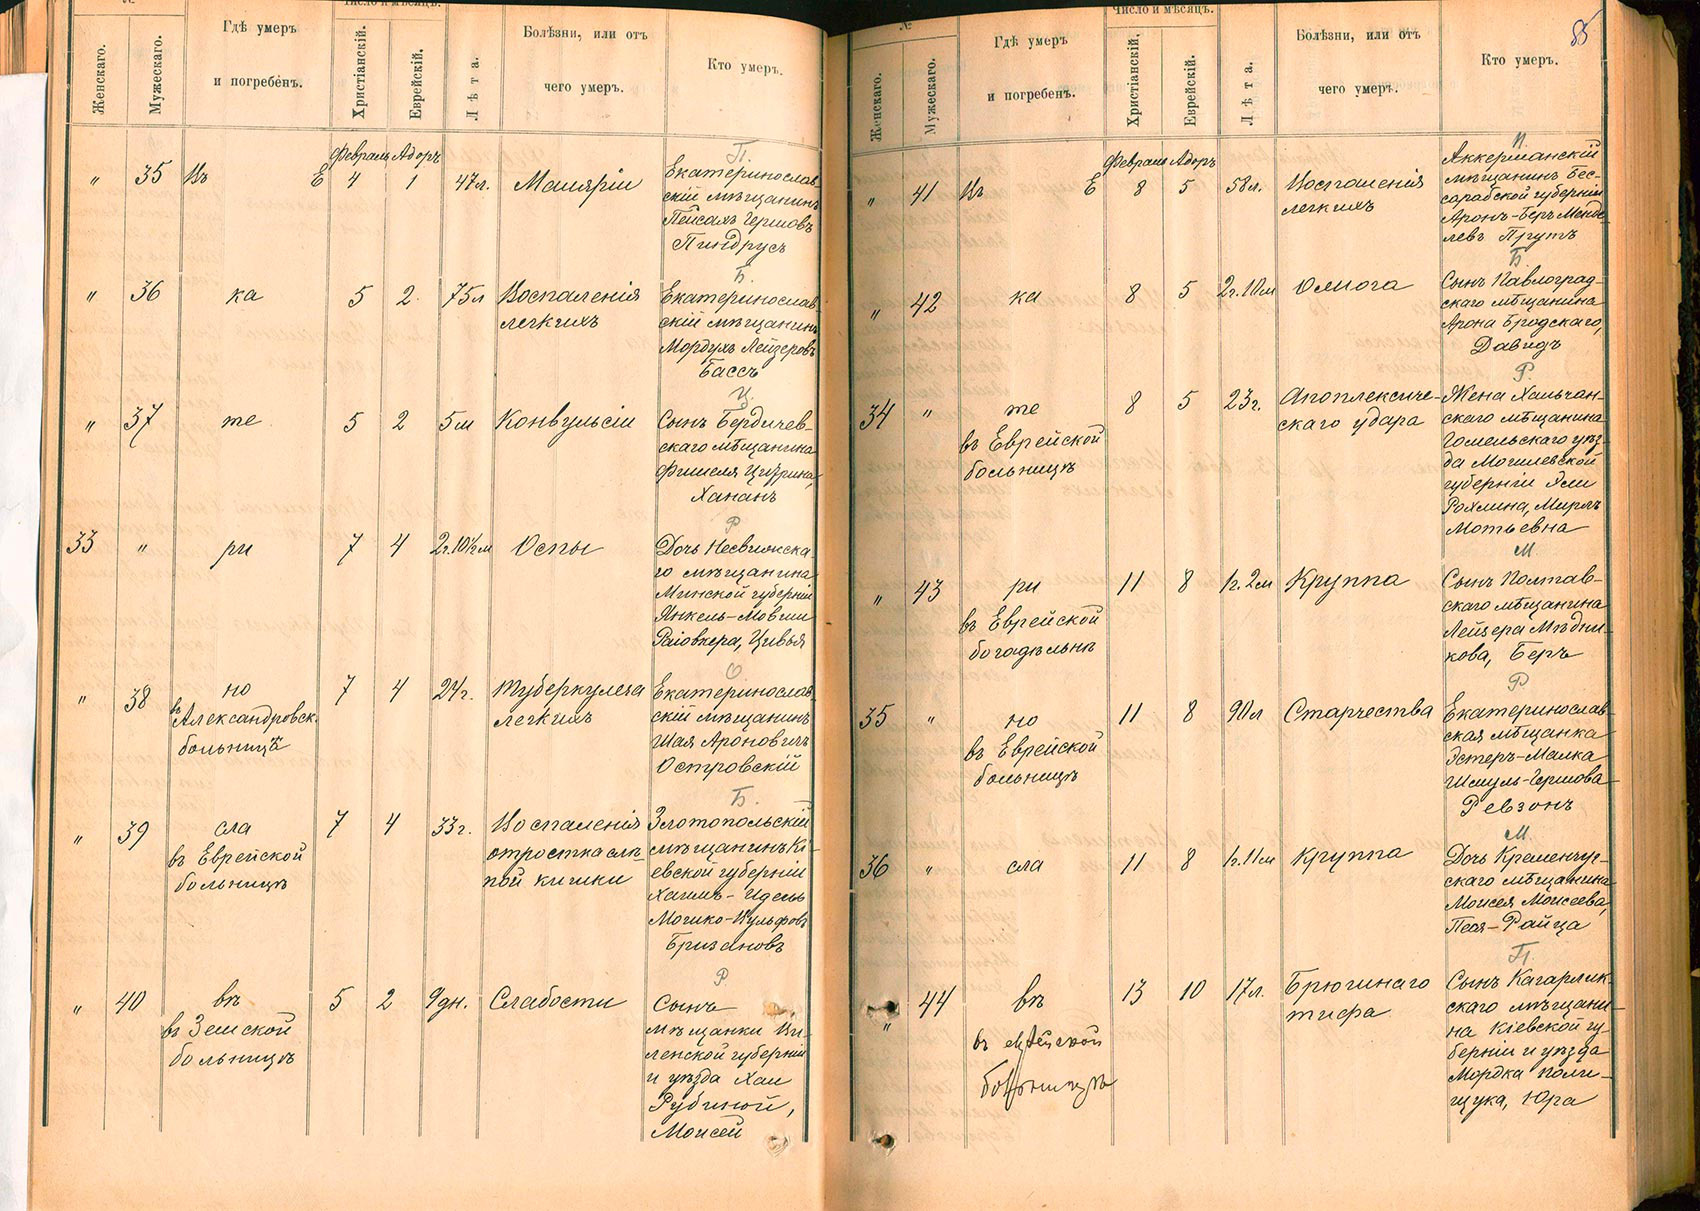 №
Число и мѣсяцъ.
Женскаго.
Мужескаго.
Гдѣ умеръ
и погребенъ.
Христіанскій.
Еврейскій.
Лѣта.
Болѣзни, или отъ
чего умеръ.
Кто умеръ.
Февраль Адоръ
П.
" 35 Въ Е 4 1 47л. Маляріи
Екатеринослав-
скій мѣщанинъ
Пейсахъ Гершовъ
Пиндрусъ
Б.
" 36 ка 5 2 75л Воспаленія
легкихъ
Екатеринослав-
скій мѣщанинъ
Мордухъ Лейзеровъ
Бассъ
Ц.
" 37 те 5 2 5м Конвульсіи
Сынъ Бердичев-
скаго мѣщанина
Фишеля Цитрина,
Хананъ
Р
33 " ри 7 4 2г.10½м Оспы
Дочь Несвижска-
го мѣщанина
Минской губерніи
Янкель-Мовши
Цивья
О
" 38 но
въ Александровск.
больницѣ
7 4 24г. Туберкулеза
легкихъ
Екатеринослав-
скій мѣщанинъ
Шая Ароновичъ
Островскій
Б.
" 39 сла
въ Еврейской
больницѣ
7 4 33г. Воспаленія
отростка слѣ-
пой кишки
Златопольскій
мѣщанинъ Кі-
евской губерніи
Хаимъ-Идель
Мошко-Вульфовъ
Бризановъ
Р
" 40 вѣ
въ Земской
больницѣ
5 2 9дн. Слабости
Сынъ
мѣщанки Ви-
ленской губерніи
и уѣзда Хаи
Рубиной,
Моисей
85
№
Число и мѣсяцъ.
Женскаго.
Мужескаго.
Гдѣ умеръ
и погребенъ.
Христіанскій.
Еврейскій.
Лѣта.
Болѣзни, или отъ
чего умеръ.
Кто умеръ.
Февраль Адоръ
П.
" 41 Въ Е 8 5 58л. Воспаленія
легкихъ
Аккерманскій
мѣщанинъ Бес-
сарабской губерніи
Аронъ-Беръ Менде-
левъ Прутъ
Б
" 42 ка 8 5 2г.10м Ожога
Сынъ Павлоград-
скаго мѣщанина
Арона Бродскаго,
Давидъ
Р.
34 " те
въ Еврейской
больницѣ
8 5 23г. Апоплексиче-
скаго удара
Жена Хальчан-
скаго мѣщанина
Гомельскаго уѣз-
да Могилевской
губерніи
Рохлина, Мирля
Мотьевна
М
" 43 ри
въ Еврейской
богадѣльнѣ
11 8 1г.2м Круппа
Сынъ Полтав-
скаго мѣщанина
Лейзера Мѣдни-
кова, Беръ
Р
35 " но
въ Еврейской
больницѣ
11 8 90л Старчества
Екатеринослав-
ская мѣщанка
Эстеръ-Малка
Шмуль-Гершова
Ревзонъ
М.
36 " сла 11 8 1г.11м Круппа
Дочь Кременчуг-
скаго мѣщанина
Моисея Моисеева,
Песя-Райца
П.
" 44 вѣ
въ еврейской
больницѣ
13 10 17л. Брюшнаго
тифа
Сынъ Кагарлик-
скаго мѣщани-
на Кіевской гу-
берніи и уѣзда
Мордка Поли-
щука, Юра